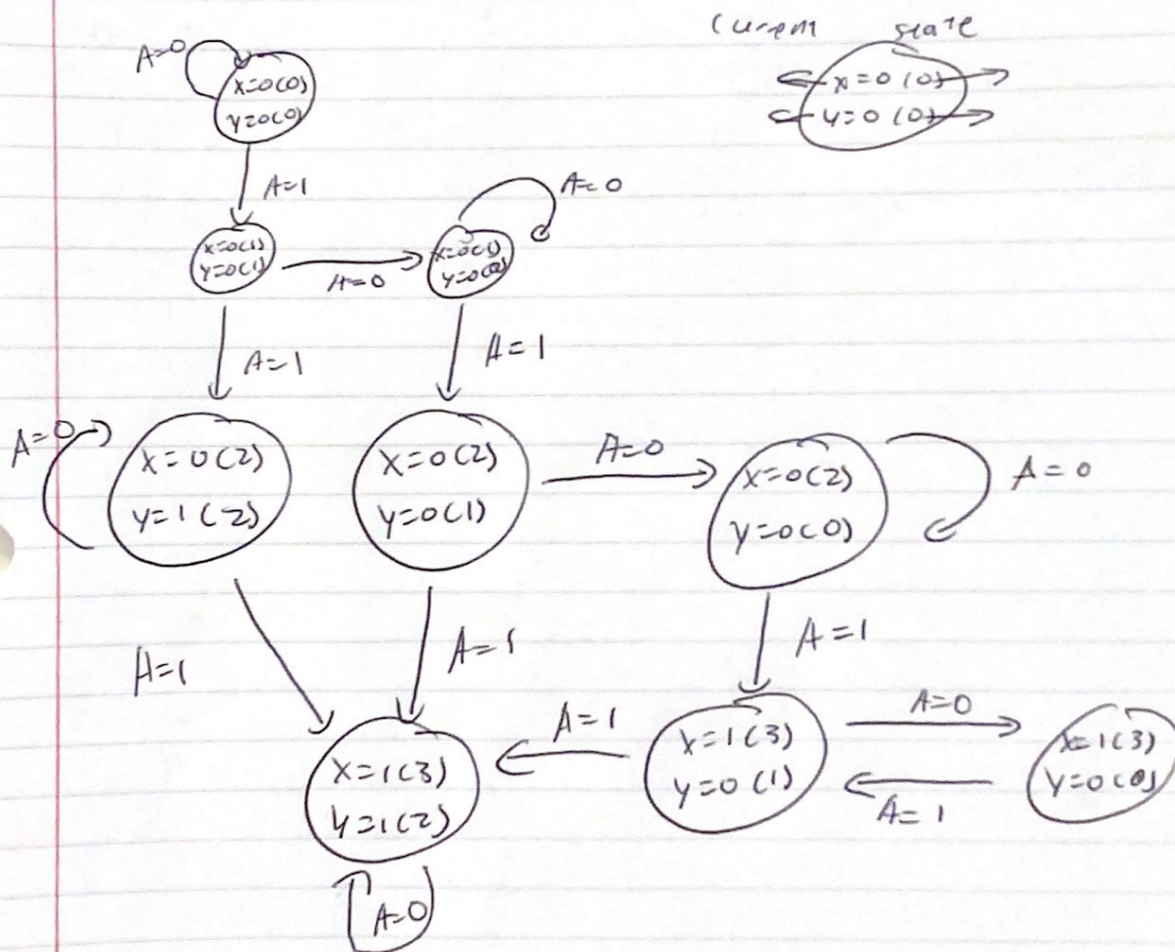 Current state
A=0
x=0(0)
y=0(0)
x=0(0)
y=0(0)
A=1
A=0
x=0(1)
y=0(1)
A=0
x=0(1)
y=0(0)
A=1
A=1
A=0
x=0(2)
y=1(2)
x=0(2)
y=0(1)
A=0
x=0(2)
y=0(0)
A=0
A=1
A=1
A=1
x=1(3)
y=1(2)
A=1
x=1(3)
y=0(1)
A=0
A=1
x=1(3)
y=0(0)
A=0